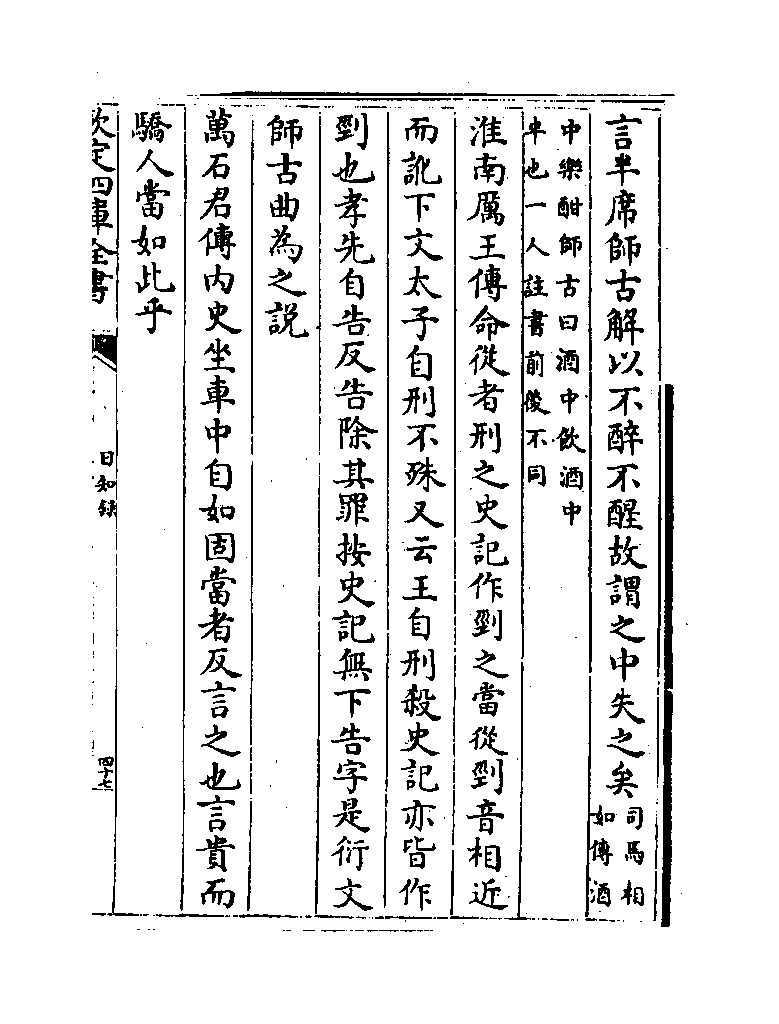 言半席師古解以不醉不醒故謂之中失之矣司馬相如傳酒
中樂酣師古曰酒中飲酒中
半也一人註書前後不同
淮南厲王傳命從者刑之史記作剄之當從剄音相近
而訛下文太子自刑不殊又云王自刑殺史記亦皆作
剄也孝先自告反告除其罪按史記無下告字是衍文
師古曲為之說
萬石君傳内史坐車中自如固當者反言之也言貴而
驕人當如此乎
欽定四庫全書
日知録
四十七